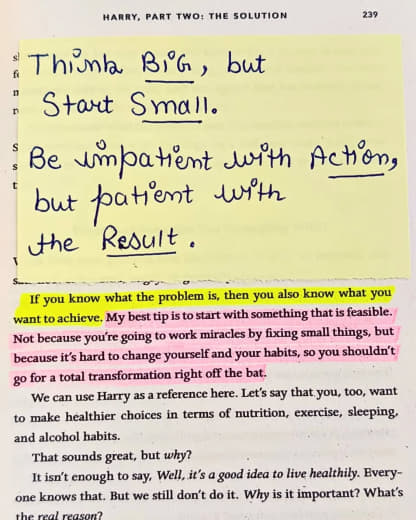 HARRY, PART TWO: THE SOLUTION 239
Think BiG, but
Start Small.
Be impatient with Action,
but patient with
the Result.
If you know what the problem is, then you also know what you
want to achieve. My best tip is to start with something that is feasible.
Not because you're going to work miracles by fixing small things, but
because it's hard to change yourself and your habits, so you shouldn't
go for a total transformation right off the bat.
We can use Harry as a reference here. Let's say that you, too, want
to make healthier choices in terms of nutrition, exercise, sleeping,
and alcohol habits.
That sounds great, but why?
It isn't enough to say, Well, it's a good idea to live healthily. Every-
one knows that. But we still don't do it. Why is it important? What's
the real reason?